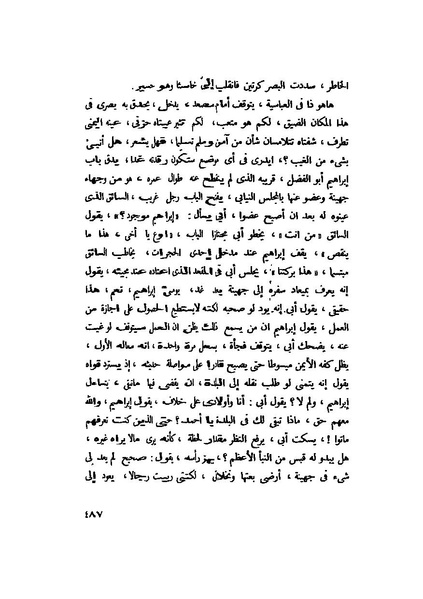 الخاطر ، سددت البصر كرتين فانقلب إليّ خاسئا وهو حسير .
هاهو ذا فى العباسية ، يتوقف أمام مصعد ، يدخل ، يحدق به بصرى فى
هذا المكان الضيق ، لكم هو متعب ، لكم تثير عيناه حزنى ، عينه اليمنى
تطرف ، شفتاه تتلامسان شأن من آمن وسلم تسليما ، فهل يشعر ، هل أنبئ
بشىء من الغيب ؟ ، ايدرى فى أى موضع ستكون رقدته غدا ، يدق باب
إبراهيم أبو الفضل ، قريبه الذى لم ينقطع عنه طوال عمره ، هو من وجهاء
جهينة وعضو عنها بالمجلس النيابى ، يفتح الباب رجل غريب ، السائق الذى
عينوه له بعد ان أصبح عضوا ، أبى يسأل : « إبراهيم موجود ؟ » ، يقول
السائق « من انت » ، يخطو أبى مجتازا الباب ، « اوع يا أخى » هذا ما
ينقص ، يقف إبراهيم عند مدخل إحدى الحجرات ، يخاطب السائق
مبتسما ، « هذا بركتنا » ، يجلس أبى فى المقعد الذى اعتاده عند مجيئه ، يقول
إنه يعرف بميعاد سفره إلى جهينة بعد غد ، يومئ إبراهيم ، نعم ، هذا
حقيقى ، يقول أبى إنه يود لو صحبه لكنه لايستطيع الحصول على اجازة من
العمل ، يقول إبراهيم ان من يسمع ذلك يظن ان العمل سيتوقف لو غبت
عنه ، يضحك أبى ، يتوقف فجأة ، يسعل مرة واحدة ، انه سعاله الأول ،
يظل كفه الأيمن مبسوطا حتى يصبح قادرا على مواصلة حديثه ، إذ يسترد قواه
يقول إنه يتمنى لو طلب نقله إلى البلدة ، ان يقضى فيها مابقى ، يتساءل
إبراهيم ، ولم لا ؟ يقول أبى : أنا وأولادى على خلاف ، يقول إبراهيم ، والله
معهم حق ، ماذا تبقى لك فى البلدة يا أحمد ؟ حتى الذين كنت تعرفهم
ماتوا ! ، يسكت أبى ، يرفع النظر مقدار لحظة ، كأنه يرى مالا يراه غيره ،
هل يبدو له قبس من النبأ الأعظم ؟ ، يهز رأسه ، يقول : صحيح لم يعد لى
شىء فى جهينة ، أرضى بعتها ونخلاتى ، لكننى ربيت رجالا ، يعود إلى
٤٨٧